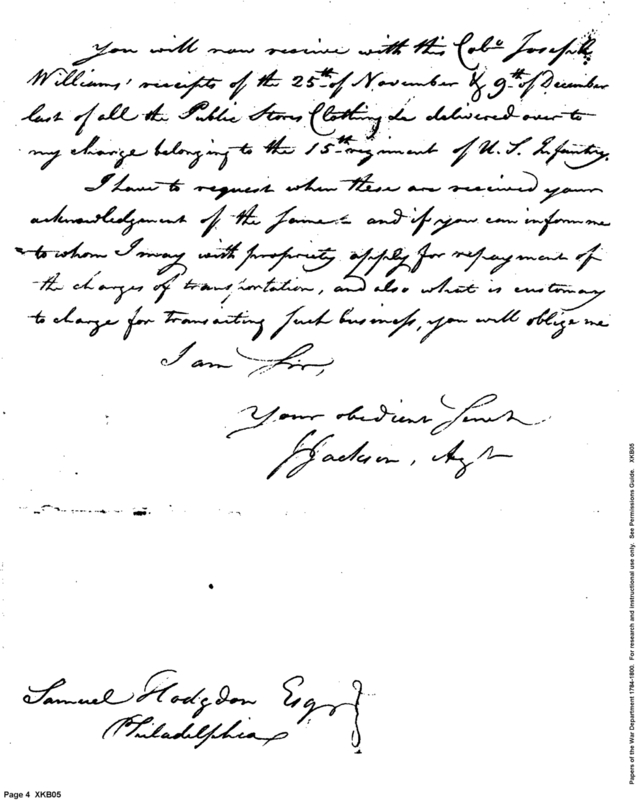 You will now receive with this Colo. Joseph
Williams' receipts of the 25th of November & 9th of December
last of all the Public Stores Clothing &c delivered over to
my charge belonging to the 15th regiment of U. S. Infantry.
I have to request when these are received your
acknowledgement of the same - and if you can inform me
to whom I may with propriety apply for repayment of
the charges of transportation, and also what is customary
to charge for transacting such business, you will oblige me
I am Sir,
Your obedient Servt
J Jackson, Agt
Samuel Hodgdon Esqr
Philadelphia
Page 4 XKB05
Papers of the War Department 1784-1800. For research and instructional use only. See Permissions Guide. XKB05